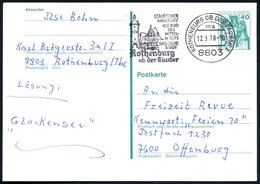 Absender
Ilse Bohn
Karl Brögerstr. 3a/I
8803 Rothenburg/Tbr
(Postleitzahl) (Ort)
Lösung:
"Glockensee"
STAUFISCHER
KAISERSITZ
KLEINOD
DES
MITTEL-
ALTERS
Rothenburg
ob der Tauber
ROTHENBURG OB DER TAUBER 1
ma
12.5.78-10
8803
40
Postkarte
An die
Freizeit Revue
Kennwort: Ferien '10
Postfach 1230
7600 Offenburg
(Postleitzahl) (Bestimmungsort)